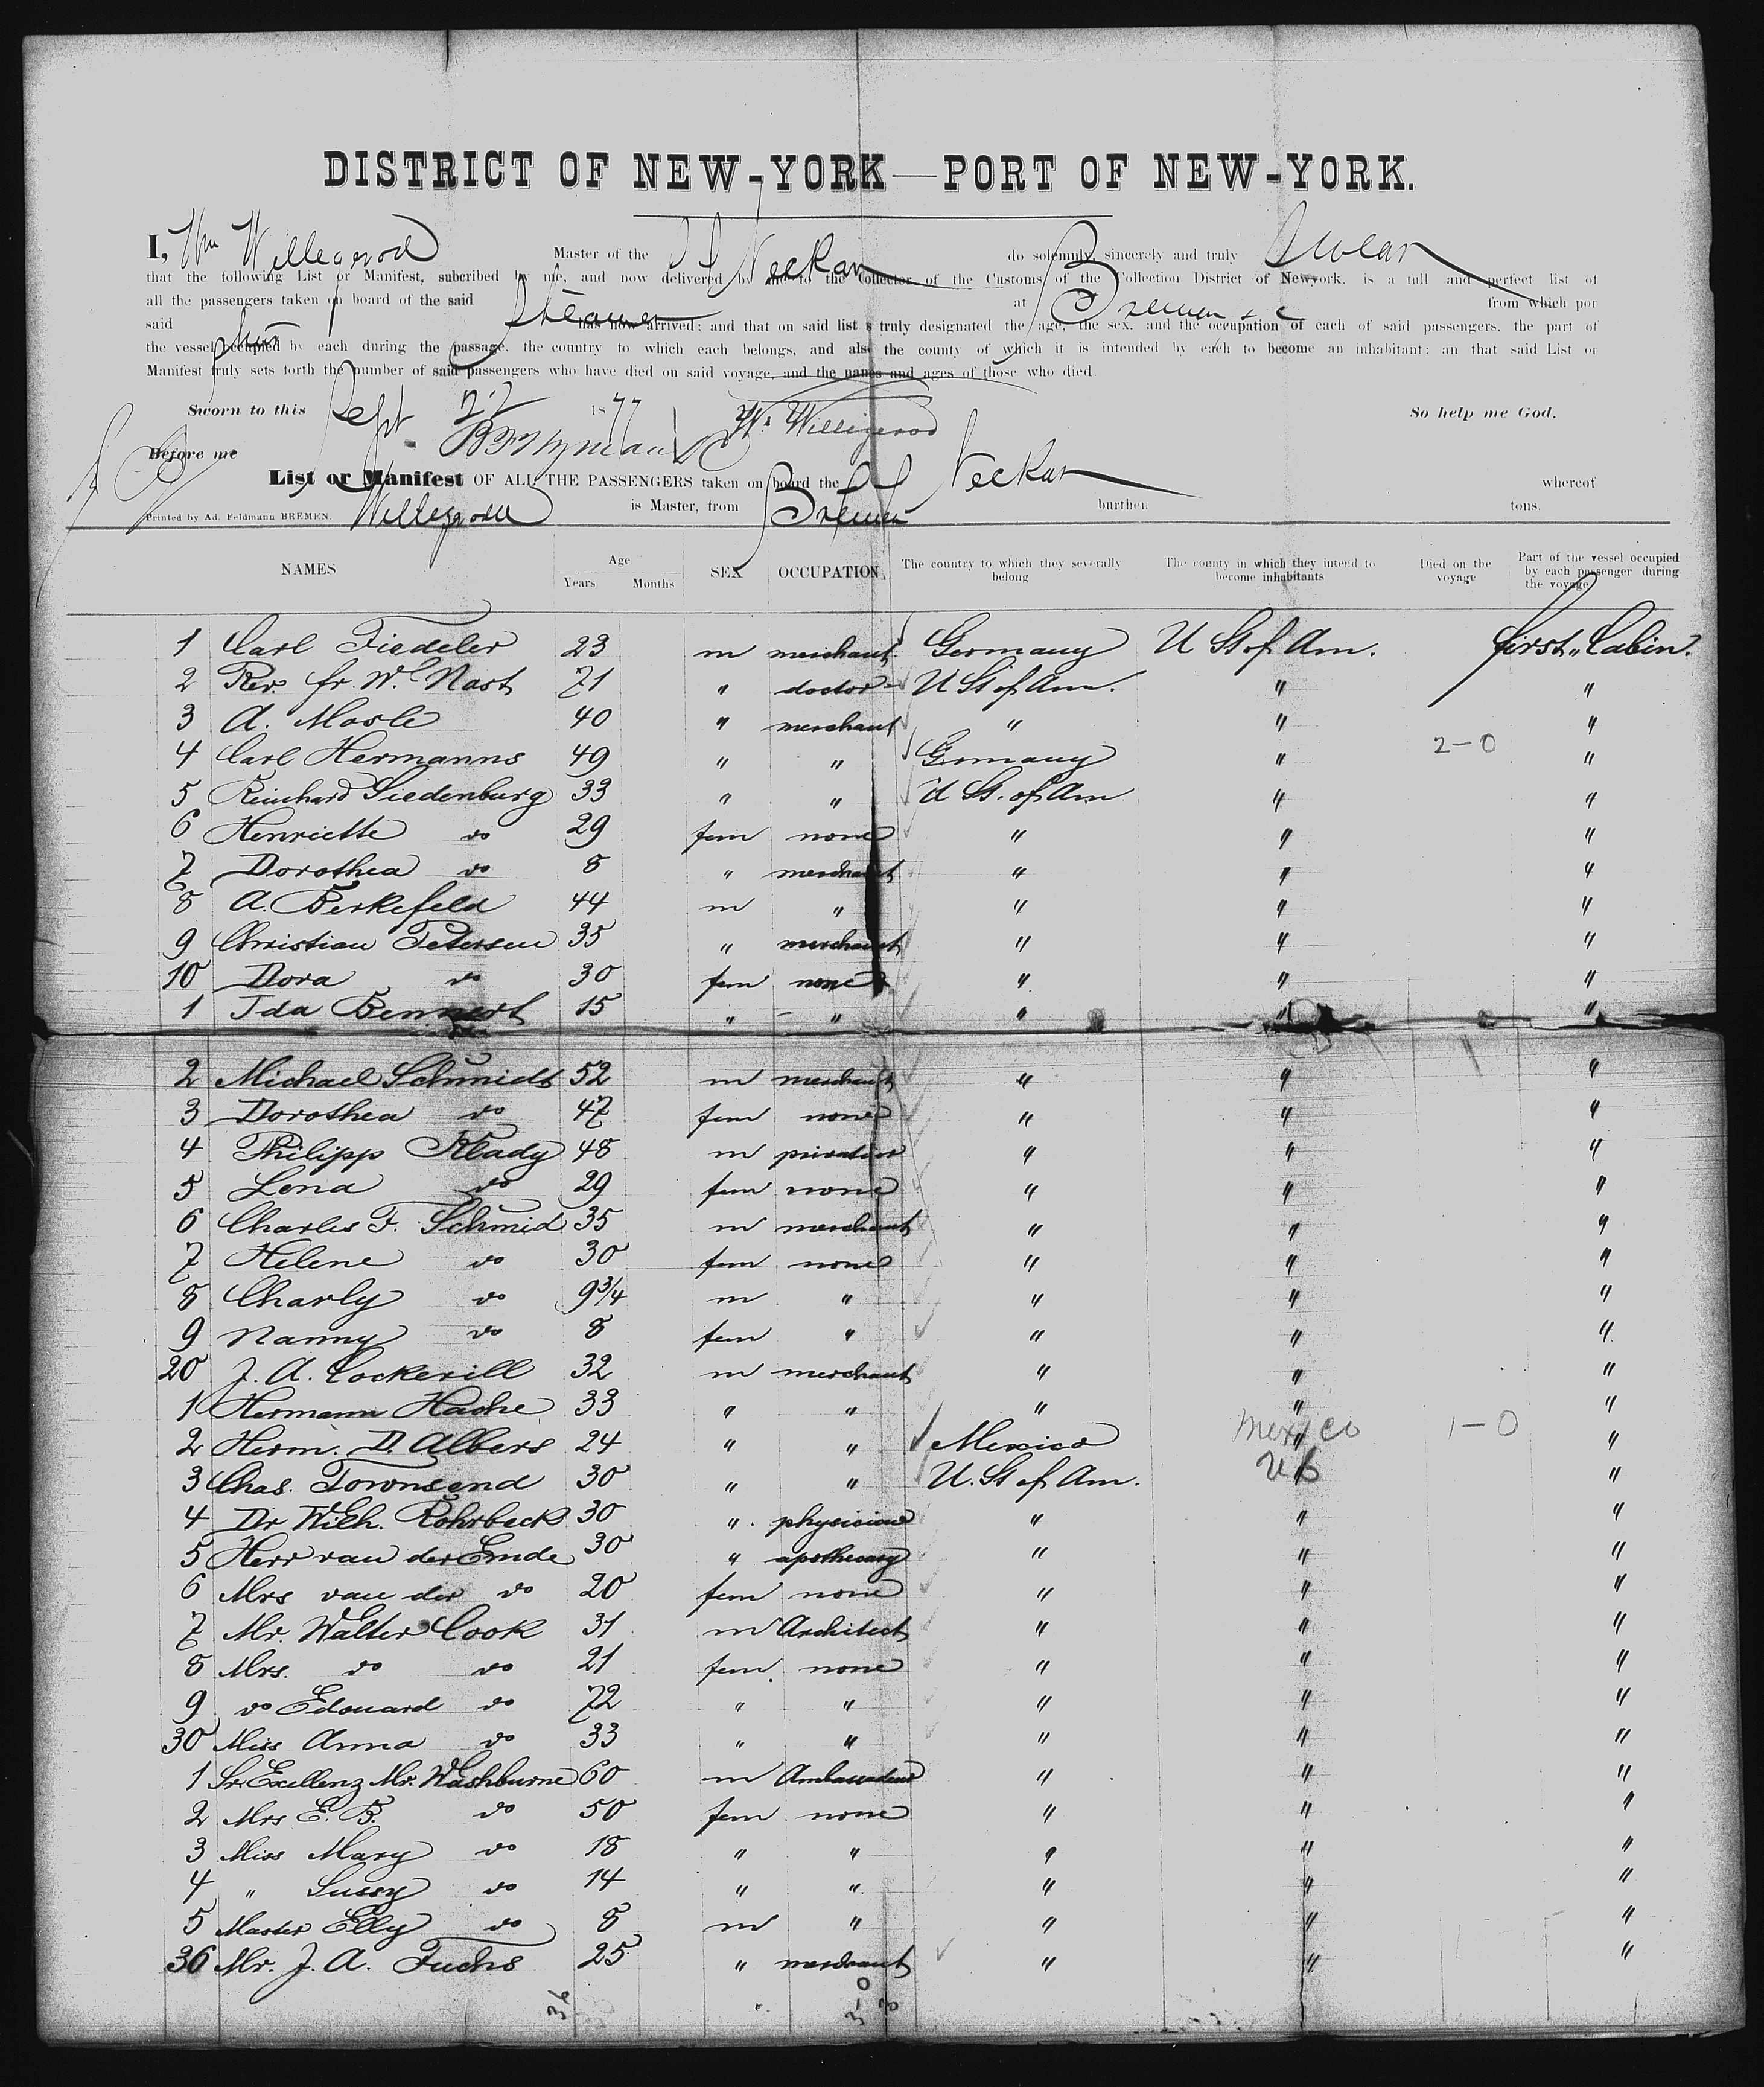 DISTRICT OF NEW-YORK—PORT OF NEW-YORK.
I, Wm Willegerod Master of the SS Neckar do solemnly, sincerely and truly Swear
that the following List or Manifest, subcribed by me, and now delivered by me to the Collector of the Customs of the Collection District of Newyork, is a full and perfect list of
all the passengers taken on board of the said Steamer at Bremen &c from which por
said ship has now arrived: and that on said list is truly designated the age, the sex, and the occupation of each of said passengers, the part of
the vessel occupied by each during the passage, the country to which each belongs, and also the county of which it is intended by each to become an inhabitant: an that said List or
Manifest truly sets forth the number of said passengers who have died on said voyage, and the names and ages of those who died.
Sworn to this Sept 22 1877 W. Willigerod So help me God.
Before me
List or Manifest OF ALL THE PASSENGERS taken on board the SS Neckar whereof
Printed by Ad. Feldmann BREMEN. Willegerod is Master, from Bremen burthen tons.
NAMES Age Years Months SEX OCCUPATION The country to which they severally belong The county in which they intend to become inhabitants Died on the voyage Part of the vessel occupied by each passenger during the voyage
1 Carl Fiedeler 23 m merchant Germany U St of Am. first Cabin.
2 Rev. fr. W. Nast 71 " doctor U St of Am. " "
3 A. Mosle 40 " merchant " " "
4 Carl Hermanns 49 " " Germany " 2-0 "
5 Reinhard Siedenburg 33 " " U St. of Am " "
6 Henriette do 29 fem none " " "
7 Dorothea do 8 " merchant " " "
8 A. Berkefeld 44 m " " " "
9 Christian Petersen 35 " merchant " " "
10 Dora do 30 fem none " " "
1 Ida Bennert 15 " " " " "
2 Michael Schmidt 52 m merchant " " "
3 Dorothea do 47 fem none " " "
4 Philipp Klady 48 m privatier " " "
5 Lena do 29 fem none " " "
6 Charles F. Schmid 35 m merchant " " "
7 Helene do 30 fem none " " "
8 Charly do 9 3/4 m " " " "
9 Nanny do 8 fem " " " "
20 J. A. Cockerill 32 m merchant " " "
1 Hermann Hache 33 " " " " "
2 Herm. D. Albers 24 " " Mexico Mexico 1-0 "
3 Chas. Townsend 30 " " U. St of Am. US "
4 Dr Wilh. Rohrbeck 30 " physician " " "
5 Herr van der Emde 30 " apothecary " " "
6 Mrs van der do 20 fem none " " "
7 Mr. Walter Cook 31 m Architect " " "
8 Mrs. do do 21 fem none " " "
9 do Edouard do 72 " " " " "
30 Miss Anna do 33 " " " " "
1 Sr. Excellenz Mr. Washburne 60 m Ambassadeur " " "
2 Mrs E. B. do 50 fem none " " "
3 Miss Mary do 18 " " " " "
4 " Sussy do 14 " " " " "
5 Master Elly do 8 m " " " "
36 Mr. J. A. Fuchs 25 " merchant " " "
36 3-0